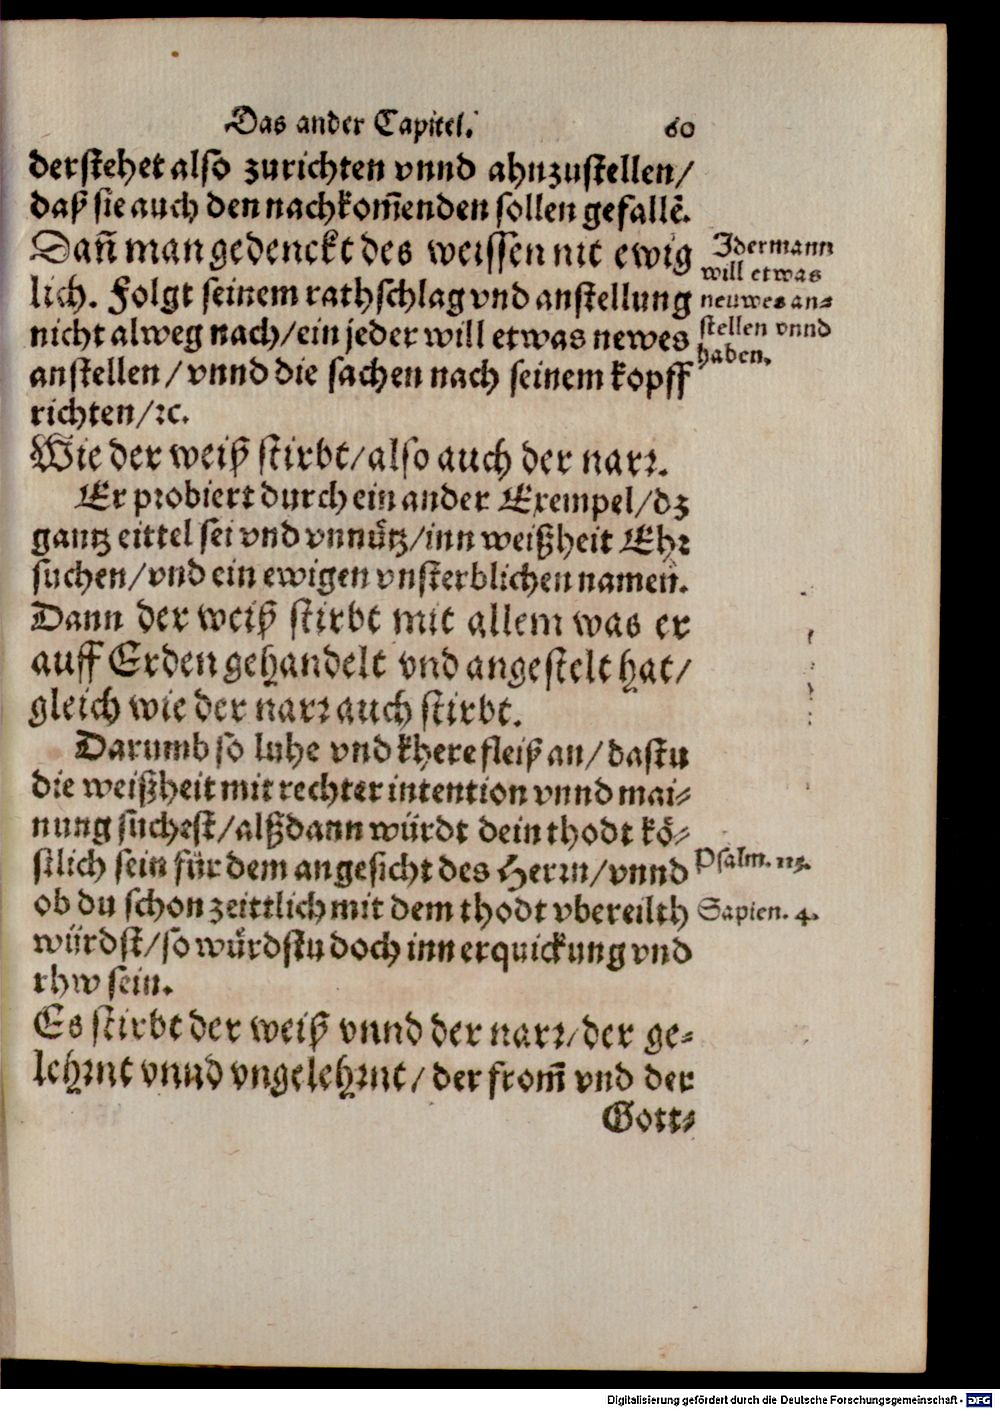 Das ander Capitel. 60
derstehet also zurichten vnnd ahnzustellen/
daß sie auch den nachkom̄enden sollen gefallē.
Dan̄ man gedenckt des weissen nit ewig
lich. Folgt seinem rathschlag vnd anstellung
nicht alweg nach/ein jeder will etwas newes
anstellen/vnnd die sachen nach seinem kopff
richten/ꝛc.
Idermann
will etwas
neuwes an⸗
stellen vnnd
haben.
Wie der weiß stirbt/also auch der narꝛ.
Er probiert durch ein ander Exempel/dz
gantz eittel sei vnd vnnütz/inn weißheit Ehꝛ
suchen/vnd ein ewigen vnsterblichen namen.
Dann der weiß stirbt mit allem was er
auff Erden gehandelt vnd angestelt hat/
gleich wie der narꝛ auch stirbt.
Darumb so luhe vnd khere fleiß an/dastu
die weißheit mit rechter intention vnnd mai⸗
nung suchest/alßdann würdt dein thodt kö⸗
stlich sein für dem angesicht des Herꝛn/vnnd
ob du schon zeittlich mit dem thodt vbereilth
würdst/so würdstu doch inn erquickung vnd
rhw sein.
Psalm. 115.
Sapien. 4.
Es stirbt der weiß vnnd der narꝛ/der ge⸗
lehꝛnt vnnd vngelehꝛnt/der from̄ vnd der
Gott⸗
Digitalisierung gefördert durch die Deutsche Forschungsgemeinschaft - DFG